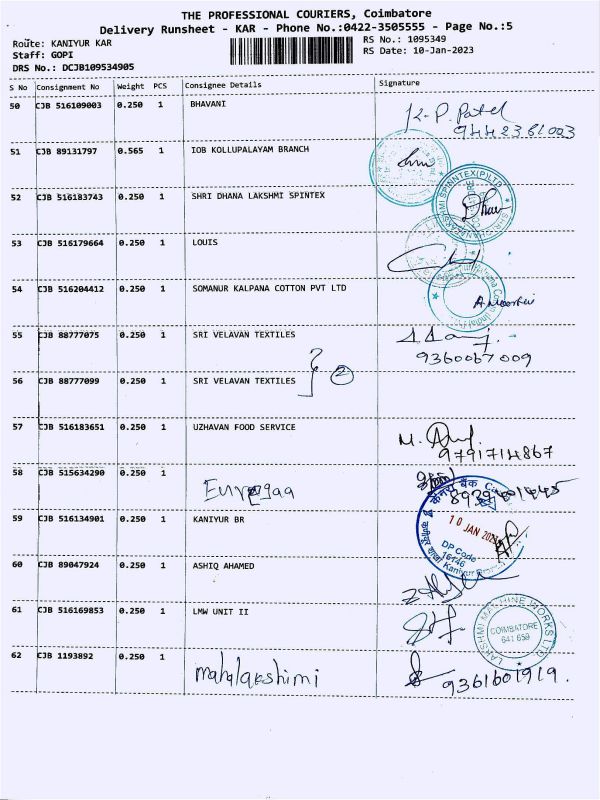 THE PROFESSIONAL COURIERS, Coimbatore
Delivery Runsheet - KAR - Phone No.:0422-3505555 - Page No.:5
Route: KANIYUR KAR
RS No.: 1095349
Staff: GOPI
RS Date: 10-Jan-2023
DRS No.: DCJB109534905
S No Consignment No Weight PCS Consignee Details Signature
50 CJB 516109003 0.250 1 BHAVANI K.P. Patel
9442361003
51 CJB 89131797 0.565 1 IOB KOLLUPALAYAM BRANCH
52 CJB 516183743 0.250 1 SHRI DHANA LAKSHMI SPINTEX
53 CJB 516179664 0.250 1 LOUIS
54 CJB 516204412 0.250 1 SOMANUR KALPANA COTTON PVT LTD
55 CJB 88777075 0.250 1 SRI VELAVAN TEXTILES
9360067009
56 CJB 88777099 0.250 1 SRI VELAVAN TEXTILES 2
57 CJB 516183651 0.250 1 UZHAVAN FOOD SERVICE
9791714867
58 CJB 515634290 0.250 1
8939401445
59 CJB 516134901 0.250 1 KANIYUR BR
10 JAN 2023
DP Code
16146
Kaniyur
60 CJB 89047924 0.250 1 ASHIQ AHAMED
61 CJB 516169853 0.250 1 LMW UNIT II
LAKSHMI MACHINE WORKS LTD
COIMBATORE
641 659
62 CJB 1193892 0.250 1 mahalakshimi
9361601919.